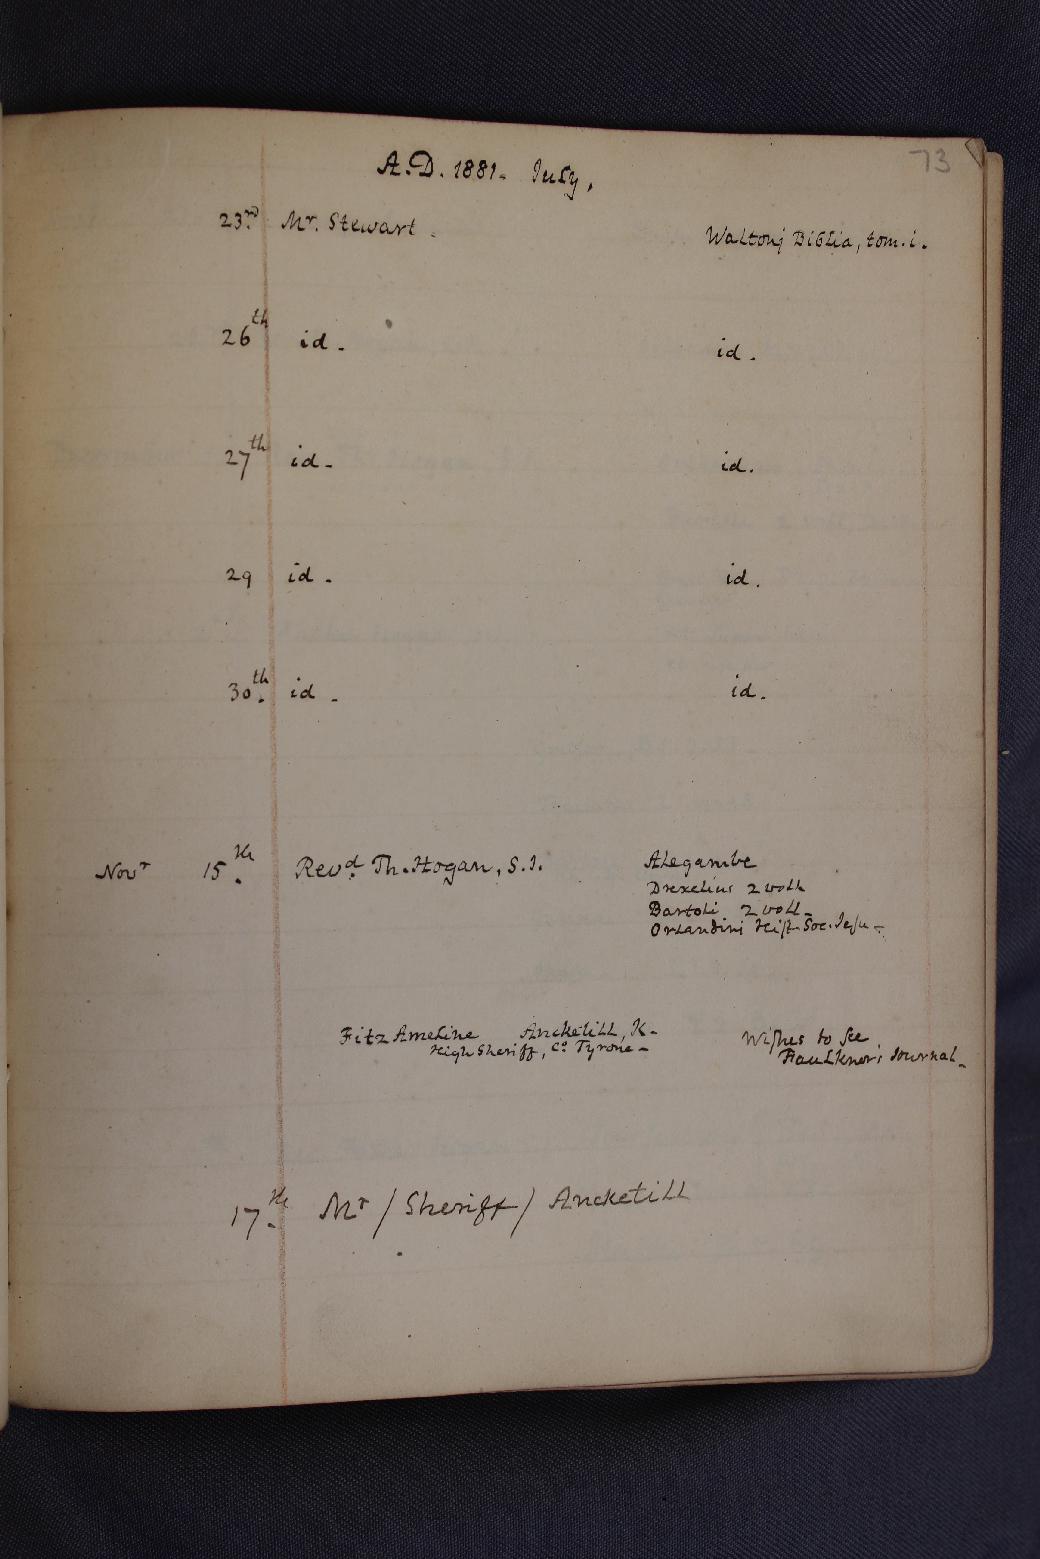 73
A.D. 1881. July.
23rd. Mr. Stewart. Waltonj Biblia, tom. i.
26th id. id.
27th id. id.
29 id. id.
30th. id. id.
Novr 15th. Revd. Th. Hogan, S.J. Alegambe
Drexelius 2 voll
Bartoli 2 voll.
Orlandini Hist. Soc. Jesu.
Fitz Ameline Ancketill, K. Wishes to see
High Sheriff, Co. Tyrone. Faulkner's Journal.
17th. Mr / Sheriff / Ancketill